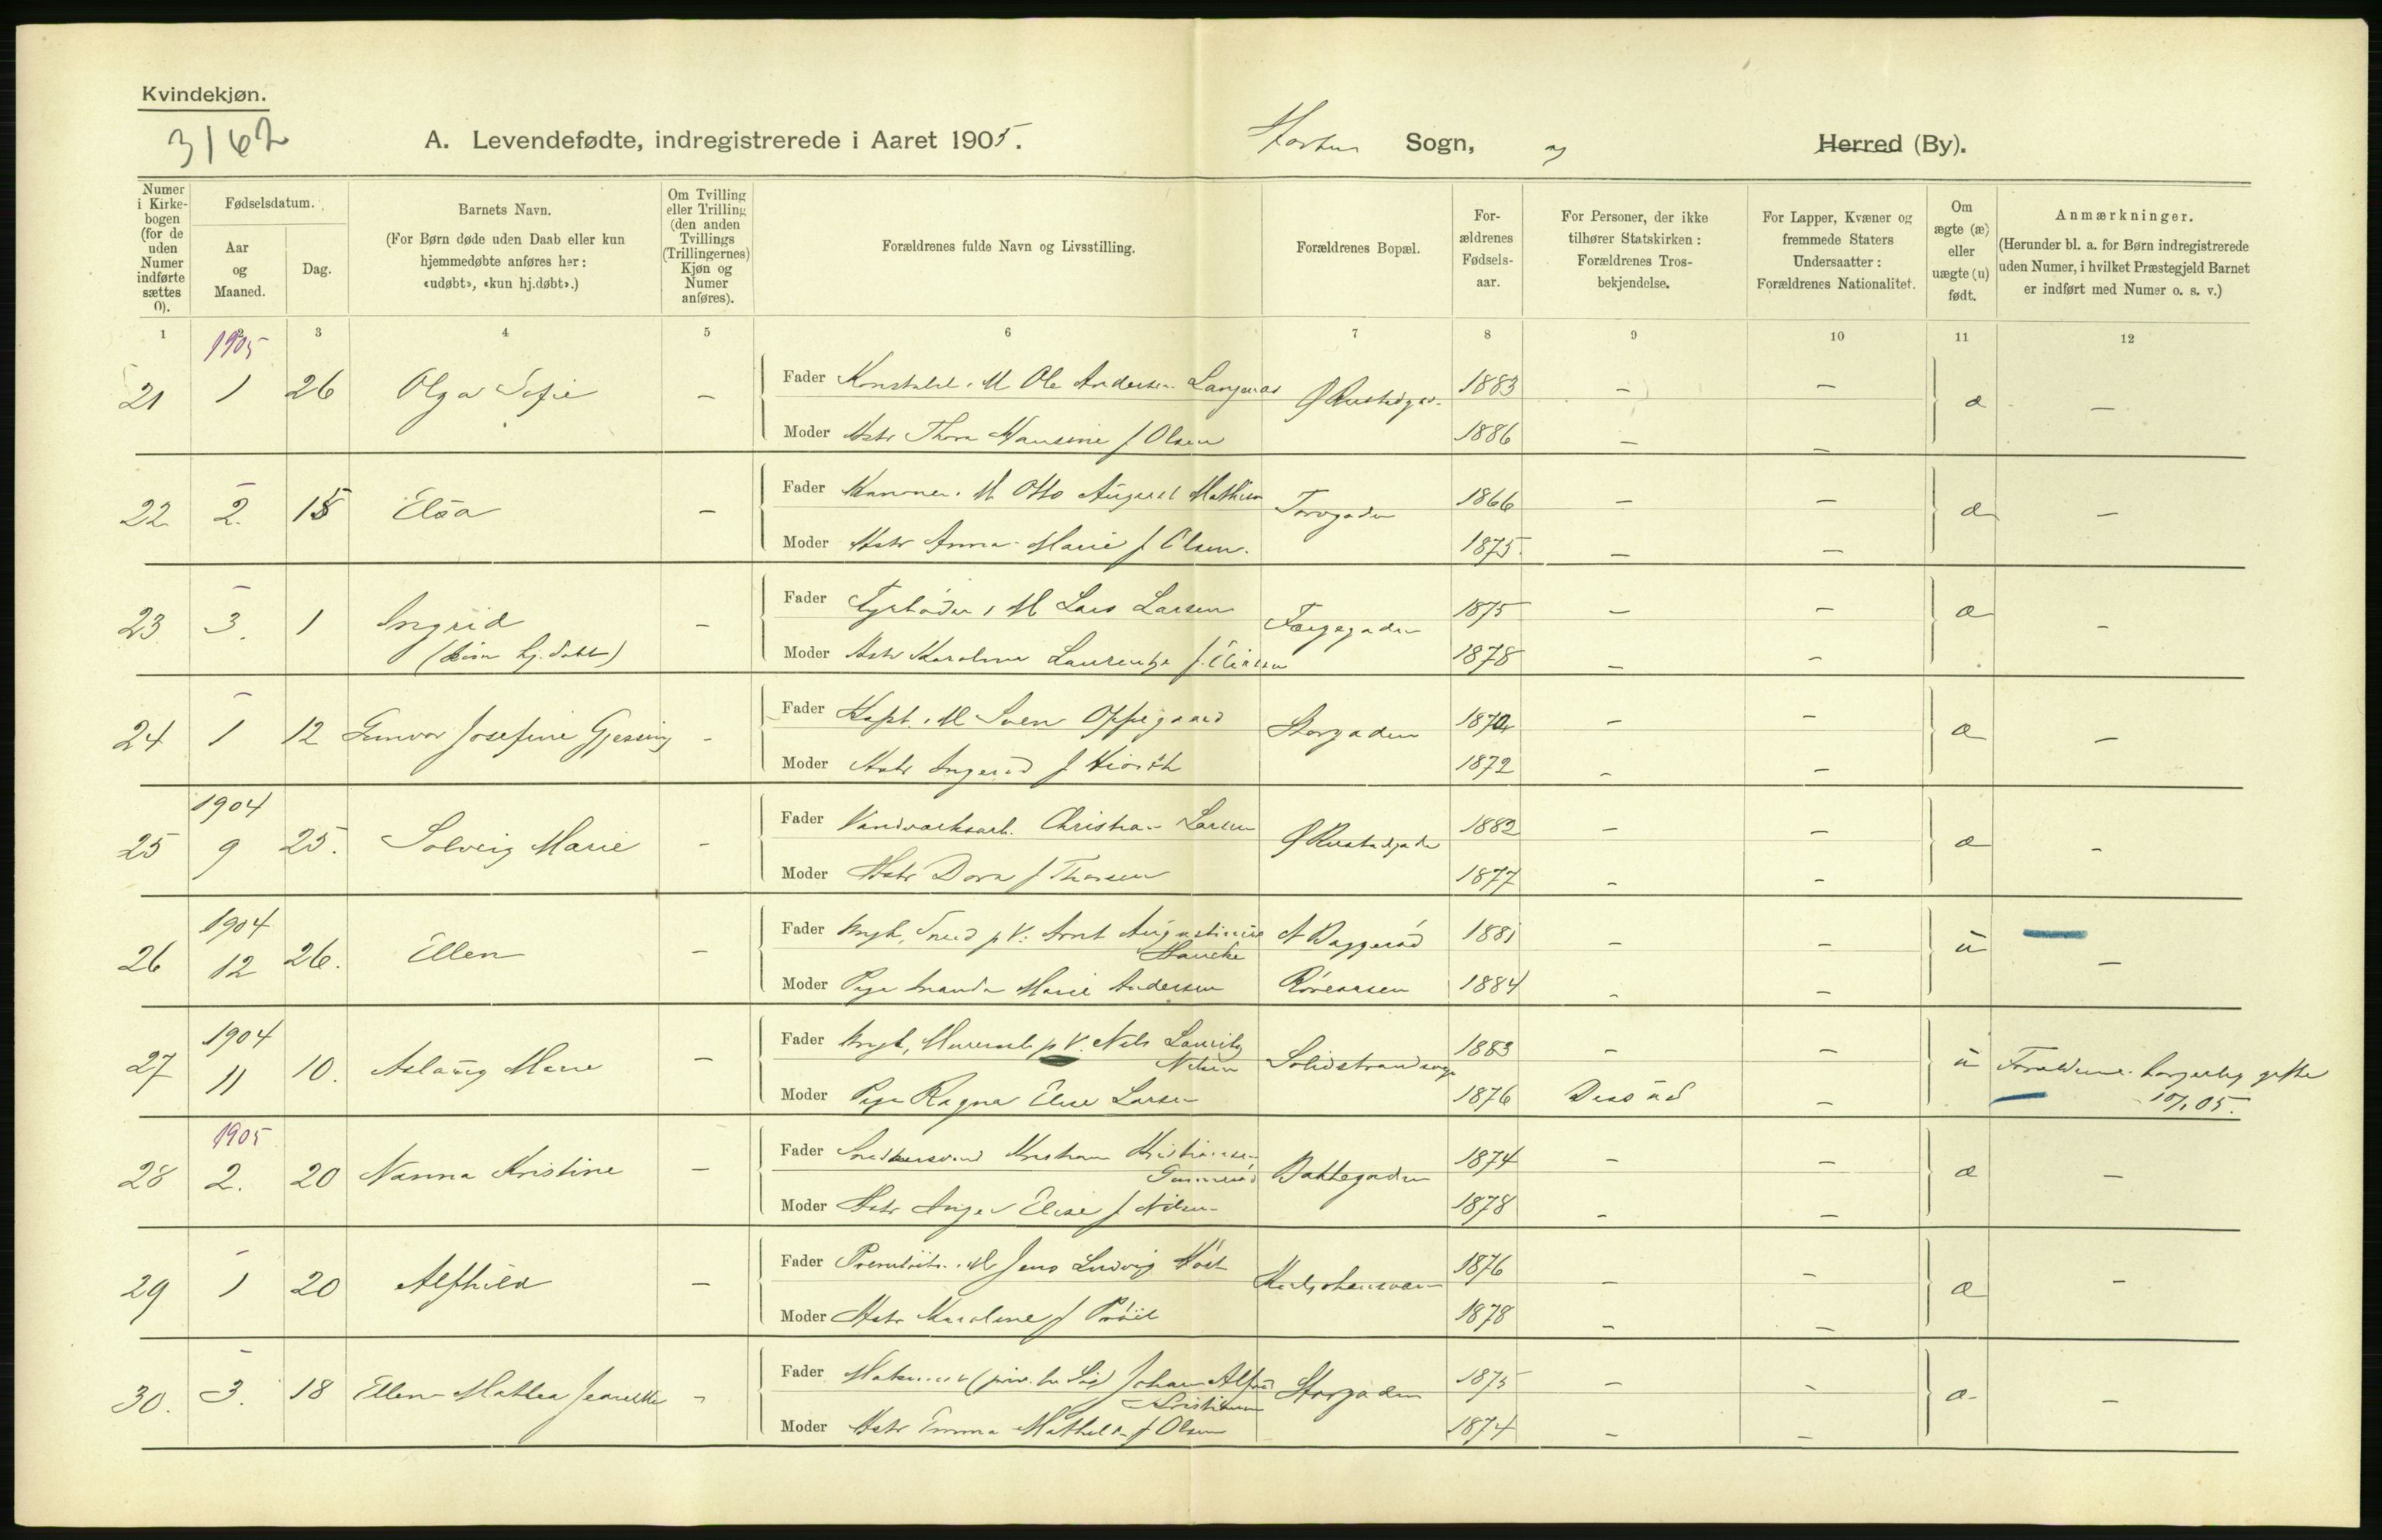 Kvindekjøn.
3162
A. Levendefødte, indregistrerede i Aaret 1905.
Horten Sogn, og Herred (By).
Numer i Kirkebogen (for de uden Numer indførte sættes 0).
Fødselsdatum.
Aar og Maaned.
Dag.
Barnets Navn.
(For Børn døde uden Daab eller kun hjemmedøbte anføres her: «udøbt», «kun hj.døbt».)
Om Tvilling eller Trilling (den anden Tvillings (Trillingernes) Kjøn og Numer anføres).
Forældrenes fulde Navn og Livsstilling.
Forældrenes Bopæl.
Forældrenes Fødselsaar.
For Personer, der ikke tilhører Statskirken: Forældrenes Trosbekjendelse.
For Lapper, Kvæner og fremmede Staters Undersaatter: Forældrenes Nationalitet.
Om ægte (æ) eller uægte (u) født.
Anmærkninger.
(Herunder bl. a. for Børn indregistrerede uden Numer, i hvilket Præstegjeld Barnet er indført med Numer o. s. v.)
1 2 3 4 5 6 7 8 9 10 11 12
1905
21 1 26 Olga Sofie - Fader Konstabel. M Ole Andersen 1883 - - æ -
Moder Hstr Thora Hansine f Olsen 1886 - -
22 - 2. 15 Elsa - Fader Kanoner. M Otto August Mathisen Torvgaden 1866 - - æ -
Moder Hstr Anna Marie f Olsen. 1875. - -
23 - 3. 1 Ingrid - Fader Fyrbøder i M Lars Larsen Færgegaden 1875 - - æ -
(kun hj. døbt) Moder Hstr Karoline f. 1878 - -
24 - 1 12 Gunvor Josefine Gjessing - Fader Kapt. i M Sven Oppegaard Storgaden - - æ -
Moder Hstr Ingerid f Kiørth 1872 - -
1904
25 9 25. Solveig Marie - Fader Christian Larsen 1882 - - æ -
Moder Hstr Dora f Thorsen 1877 - -
1904
26 12 26. Ellen - Fader Ungk, Smed p V. Arnt Augustinius Hancke 1881 - - u -
Moder Pige Marie Andersen 1884 - -
1904
27 11 10. Aslaug Marie - Fader Ungk, p V. Nils Lauritz Nilsen 1883 - - u Forældrene borgerlig gifte
Moder Pige Ragna Elise Larsen 1876 -
1905
28 2. 20 Nanna Kristine - Fader Kristian Kristiansen Bakkegaden 1874 - - æ -
Moder Hstr Inga Elise f Nilsen 1878 - -
29 - 1 20 Alfhild - Fader Premløit. i M Jens Ludvig Høst Karljohansværn 1876 - - æ -
Moder Hstr Karoline f 1878 - -
30. - 3. 18 Ellen Mathea Jeanette - Fader Johan Alfred Kristiansen Storgaden 1875 - - æ -
Moder Hstr Emma Mathilde f Olsen 1874 - -